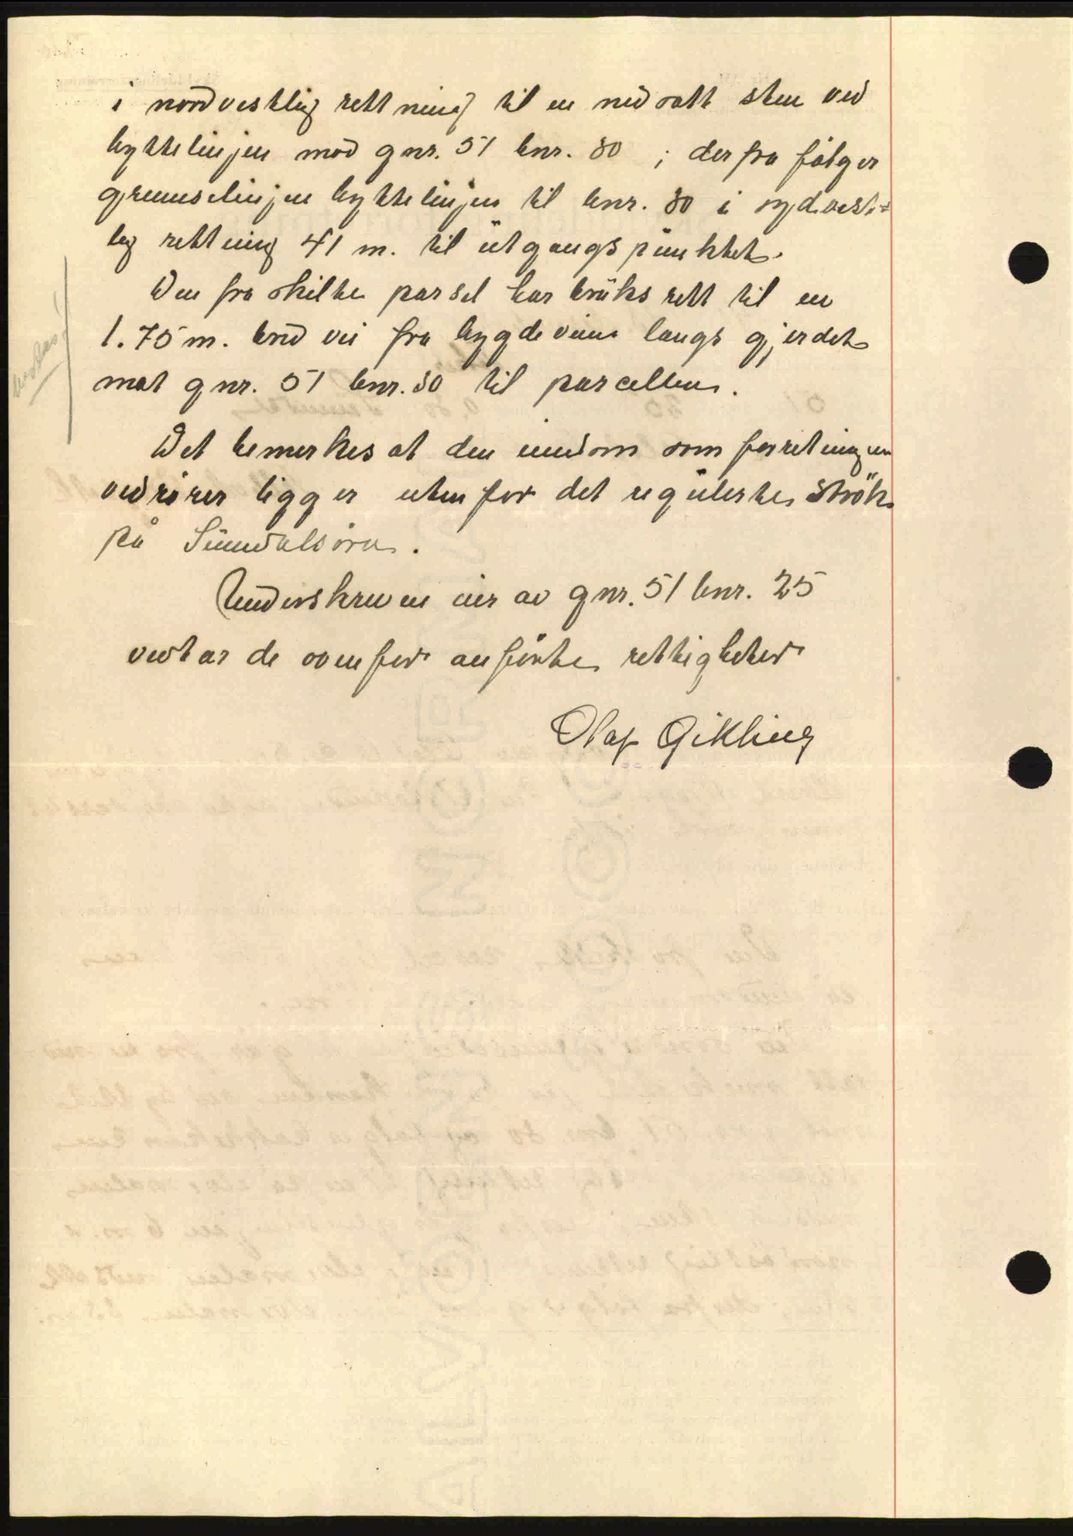 i nordvestlig rettning til en nedsatt sten ved
byttelinjen mod gnr. 51 bnr. 30 ; derfra følger
grenselinjen byttelinjen til bnr. 30 i sydvest=
lig rettning 41 m. til utgangspunktet.
Den fraskilte parsel har bruksrett til en
1.75 m. bred vei fra bygdeveien langs gjerdet
mot gnr. 51 bnr. 30 til parcellen.
Det bemerkes at den eiendom som forretningen
vedrører ligger utenfor det regulerte strøk
på Sunndalsøra.
Underskreven eier av gnr. 51 bnr. 25
vedtar de ovenfor anførte rettigheter
Olaf Gikling